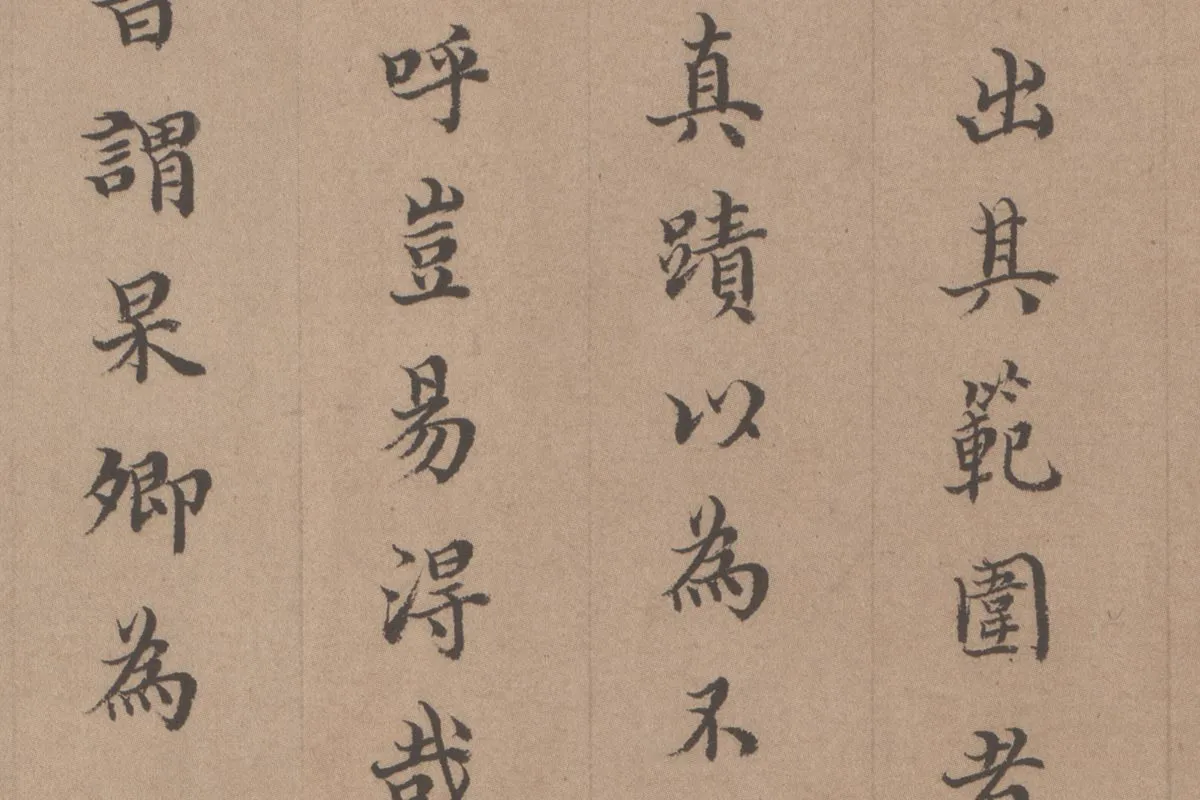 出其範圍者
真蹟以為不
呼豈易得哉
謂杲卿為